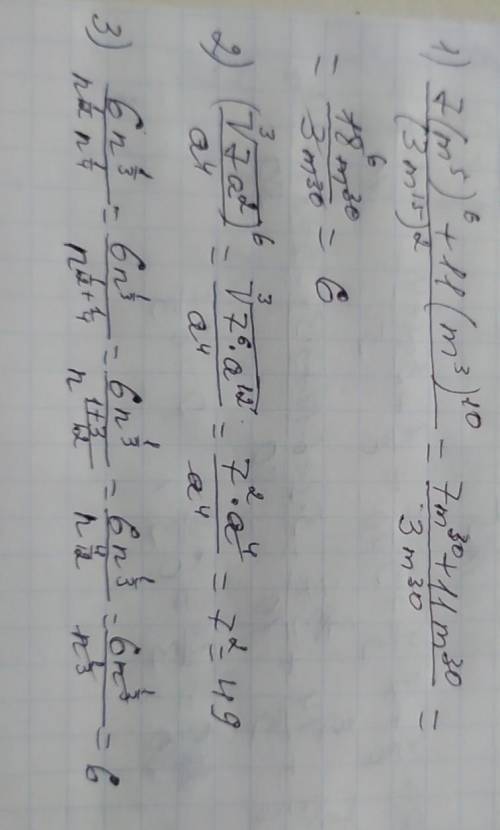 1) \frac{7(m^5)^6 + 11(m^3)^{10}}{(3m^{15})^2} = \frac{7m^{30} + 11m^{30}}{3m^{30}} =
= \frac{18^6 m^{30}}{3m^{30}} = 6
2) \frac{(\sqrt[3]{7a^2})^6}{a^4} = \frac{\sqrt[3]{7^6 \cdot a^{12}}}{a^4} = \frac{7^2 \cdot a^4}{a^4} = 7^2 = 49
3) \frac{6n^{\frac{1}{3}}}{n^{\frac{1}{12}} n^{\frac{1}{4}}} = \frac{6n^{\frac{1}{3}}}{n^{\frac{1}{12}+\frac{1}{4}}} = \frac{6n^{\frac{1}{3}}}{n^{\frac{1+3}{12}}} = \frac{6n^{\frac{1}{3}}}{n^{\frac{4}{12}}} = \frac{6n^{\frac{1}{3}}}{n^{\frac{1}{3}}} = 6